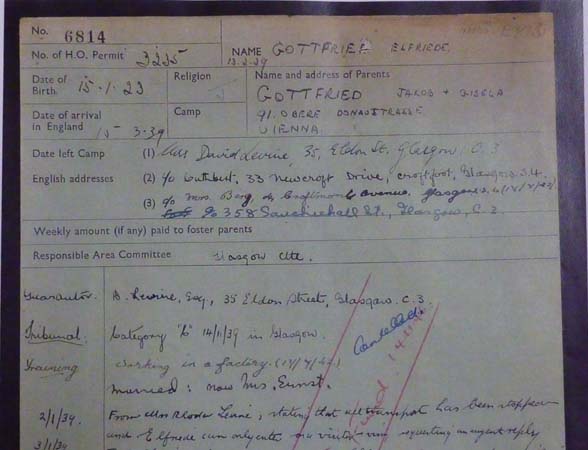 No. 6814
No. of H.O. Permit 3235
NAME GOTTFRIED ELFRIEDE
13.2.39
Date of Birth. 15.1.23
Religion J
Name and address of Parents
GOTTFRIED JAKOB + GISELA
91. OBERE DONAUSTRASSE
VIENNA.
Date of arrival in England 15 3.39
Camp
Date left Camp
English addresses
(1) Mrs David Levine, 35, Eldon St. Glasgow, C.3
(2) c/o Cuthbert, 33 Newcroft Drive, Croftfoot, Glasgow S.4.
(3) c/o Mrs. Berg, Croftmont Avenue, Glasgow S.4
c/o 358 Sauchiehall St., Glasgow, C.2.
Weekly amount (if any) paid to foster parents
Responsible Area Committee Glasgow Ctte.
Guarantor. D. Levine, Esq., 35 Eldon Street, Glasgow. C.3.
Tribunal. Category "C" 14/11/39 in Glasgow.
Cancelled
Training Working in a factory.
Married: now Mrs. Ernst.
2/1/39 From Mrs Rhoda Levine, stating that all transport has been stopped
and Elfriede can only enter on a visitor's visa requesting an urgent reply
3/1/39